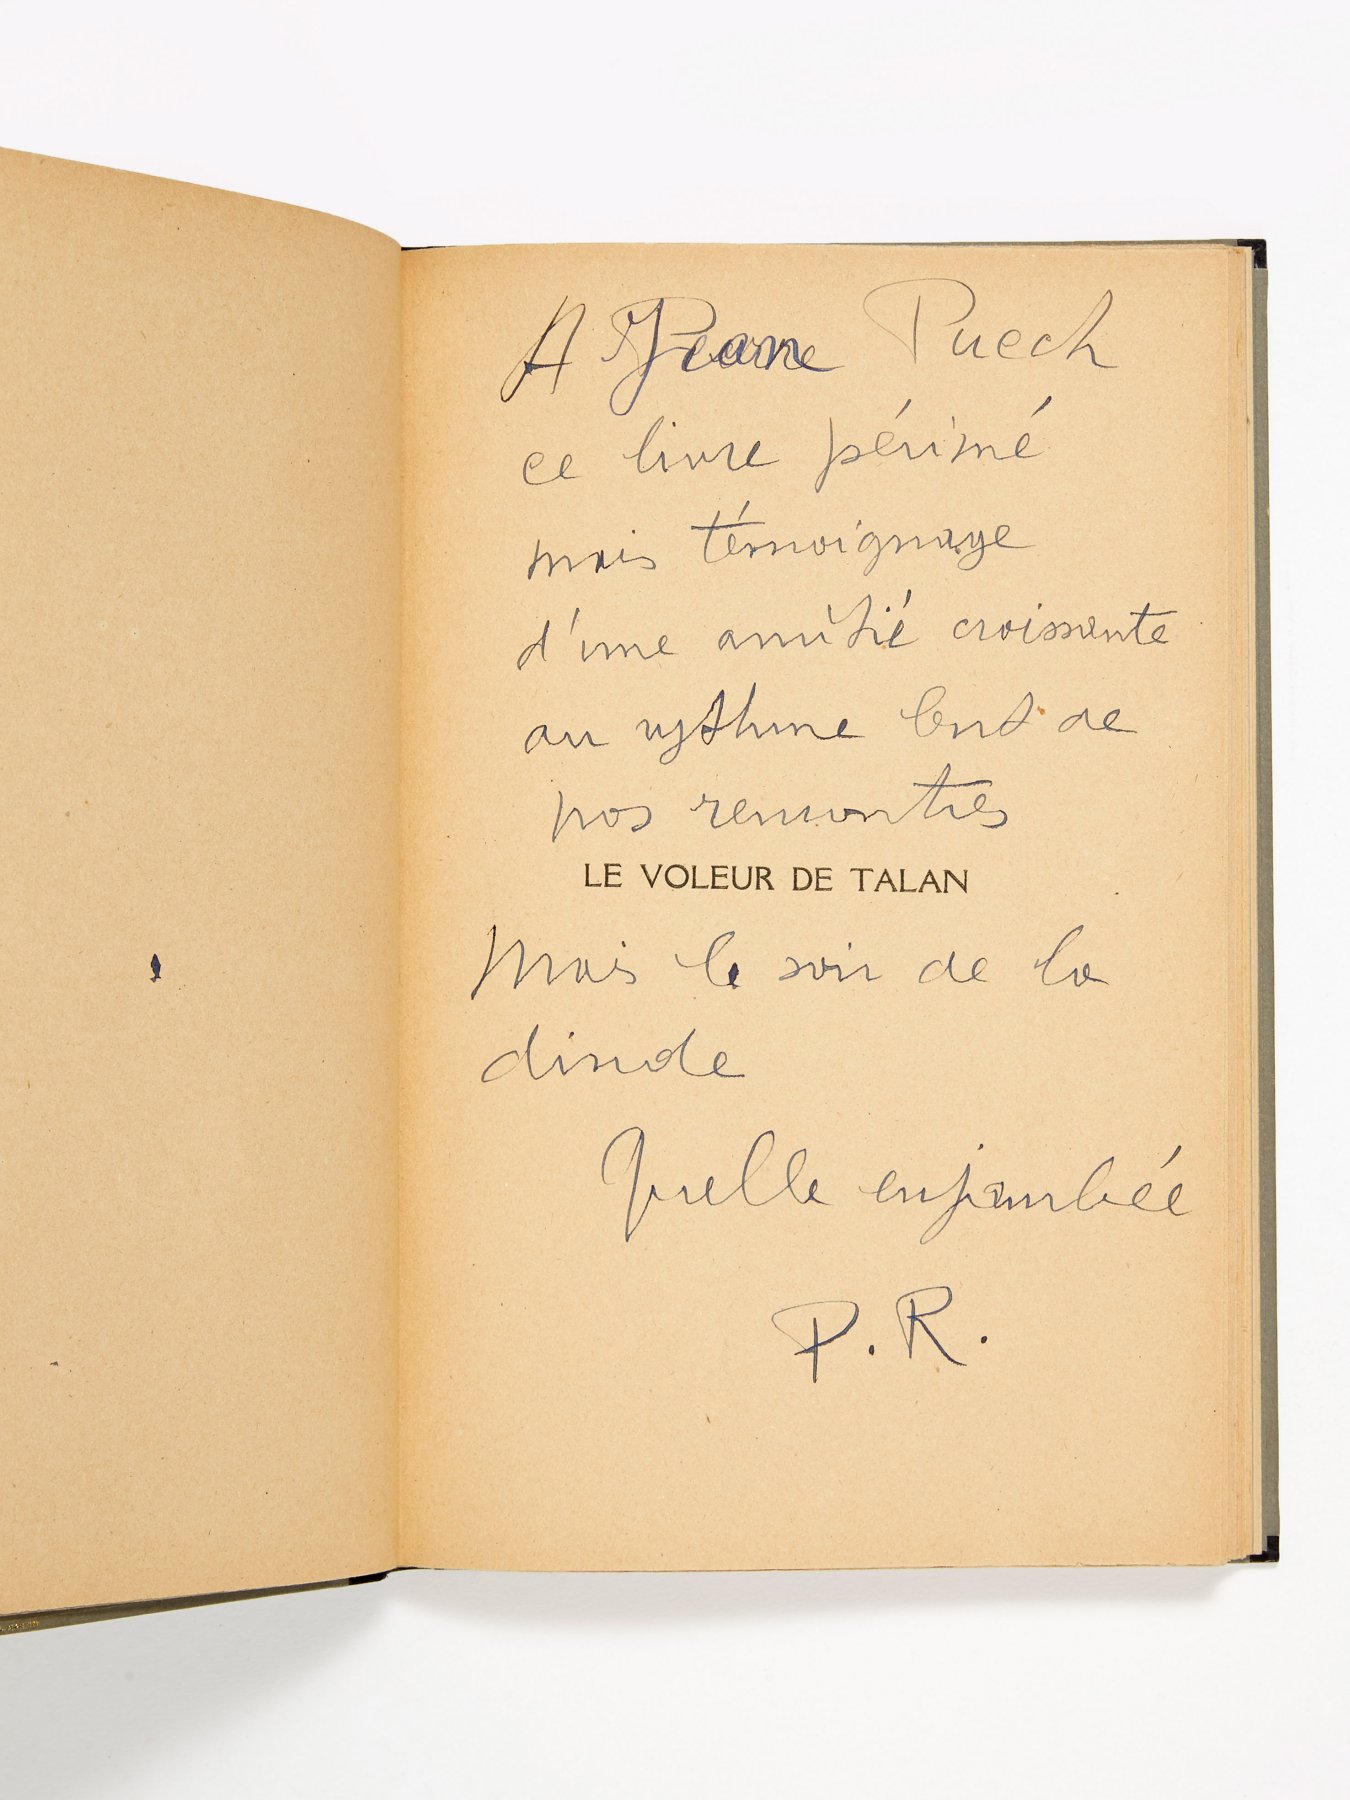 A Jean Puech
ce livre périmé
mais témoignage
d'une amitié croissante
au rythme lent de
nos rencontres
LE VOLEUR DE TALAN
Mais le soir de la
dinde
Quelle enjambée
P. R.